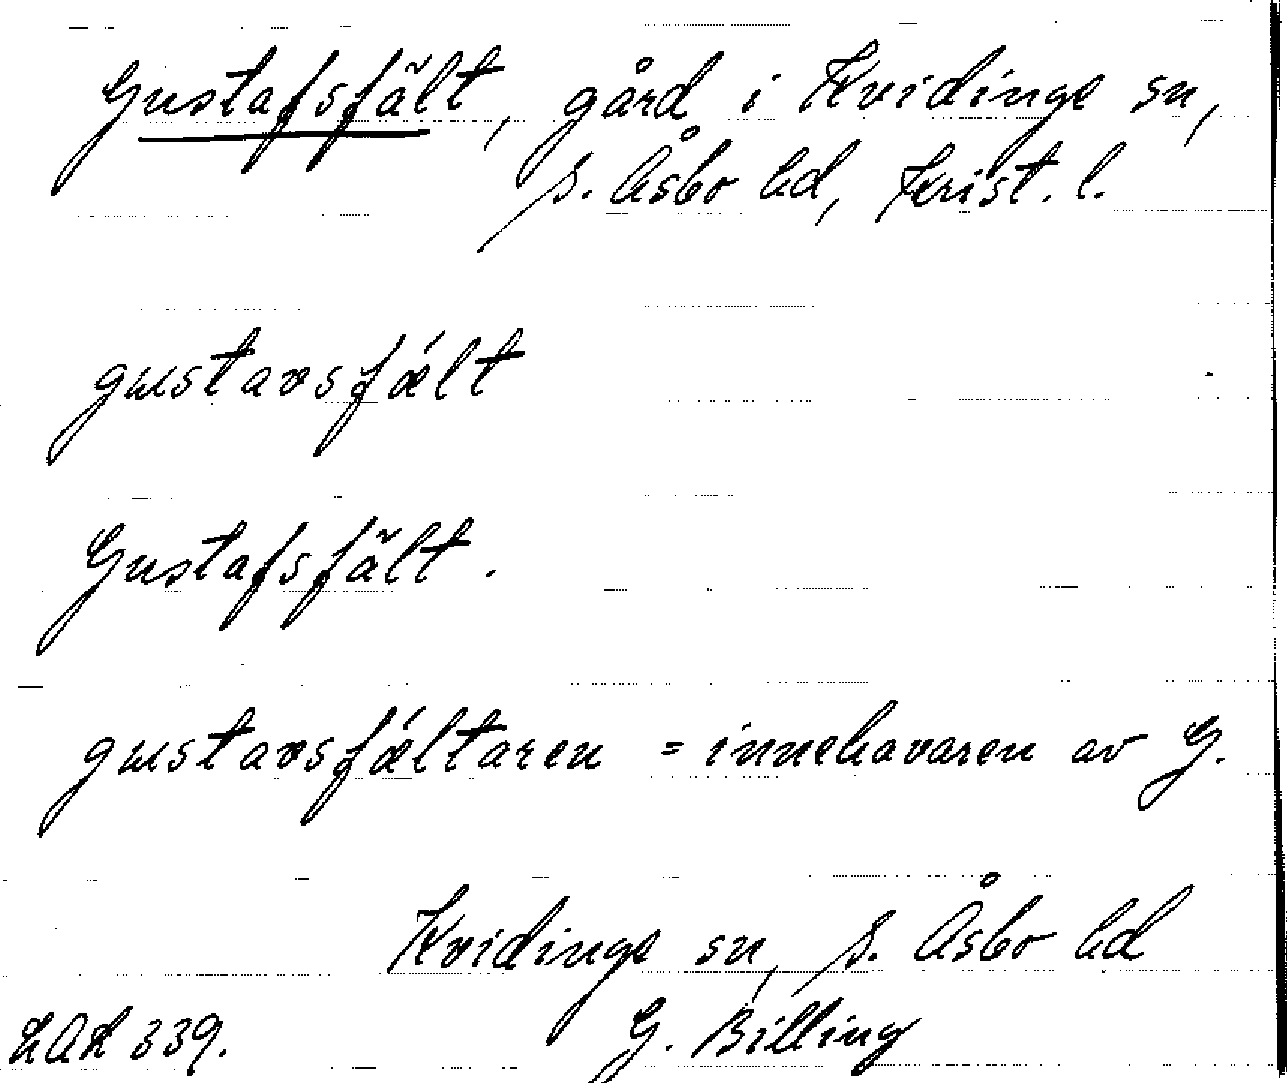 Gustafsfält, gård i Kvidinge sn,
S. Åsbo hd, Krist. l.
gustavsfǽlt
Gustafsfält.
gustavsfǽltaren = innehavaren av G.
Kvidinge sn, S. Åsbo hd
LAL 339. G. Billing